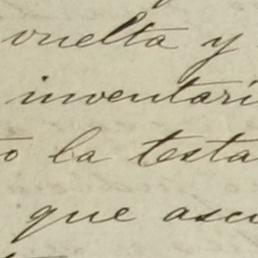 vuelta y
inventari
o la testa
que asc